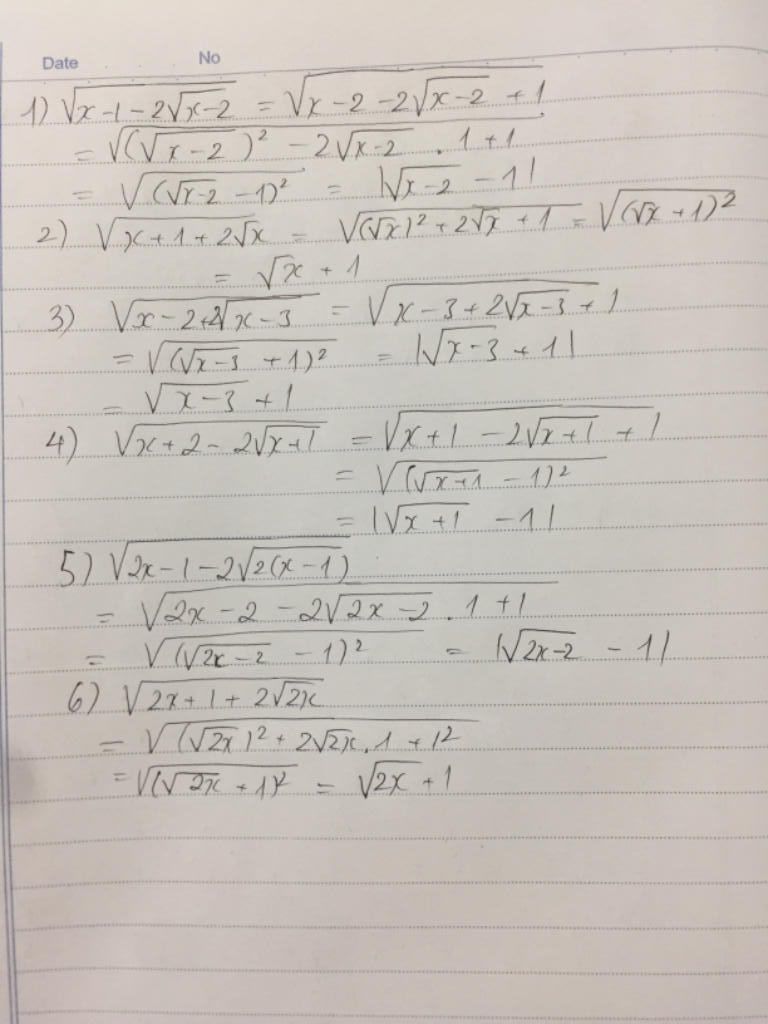 Date No
1) √(x-1-2√(x-2)) = √(x-2-2√(x-2) +1)
= √((√(x-2))² - 2√(x-2) . 1 + 1)
= √((√(x-2) -1)²) = |√(x-2) - 1|
2) √(x+1+2√x) = √((√x)²+2√x+1) = √((√x+1)²)
= √x + 1
3) √(x-2+2√(x-3)) = √(x-3+2√(x-3)+1)
= √((√(x-3) +1)²) = |√(x-3) + 1|
= √(x-3) + 1
4) √(x+2-2√(x+1)) = √(x+1 -2√(x+1) + 1)
= √((√(x+1) - 1)²)
= |√(x+1) - 1|
5) √(2x-1-2√(2(x-1)))
= √(2x-2 -2√(2x-2) . 1 + 1)
= √((√(2x-2) - 1)²) = |√(2x-2) - 1|
6) √(2x+1+2√(2x))
= √((√(2x))² + 2√(2x) . 1 + 1²)
= √((√(2x) + 1)²) = √(2x) + 1